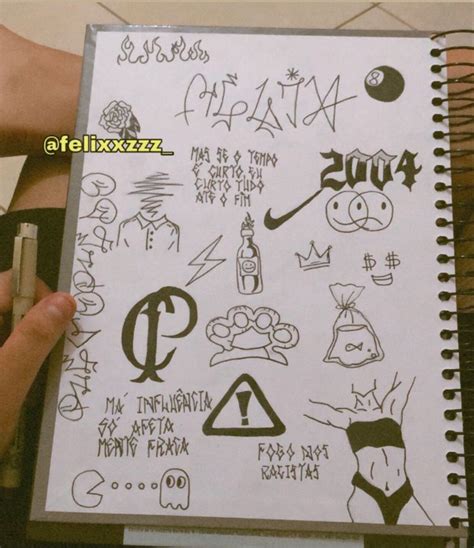 8
@felixxzzz_
MAS SE O TEMPO
É CURTO EU
CURTO TUDO
ATÉ O FIM
2004
$ $
CP
!
MÁ INFLUÊNCIA
SO AFETA
MENTE FRACA
FOGO NOS
RACISTAS